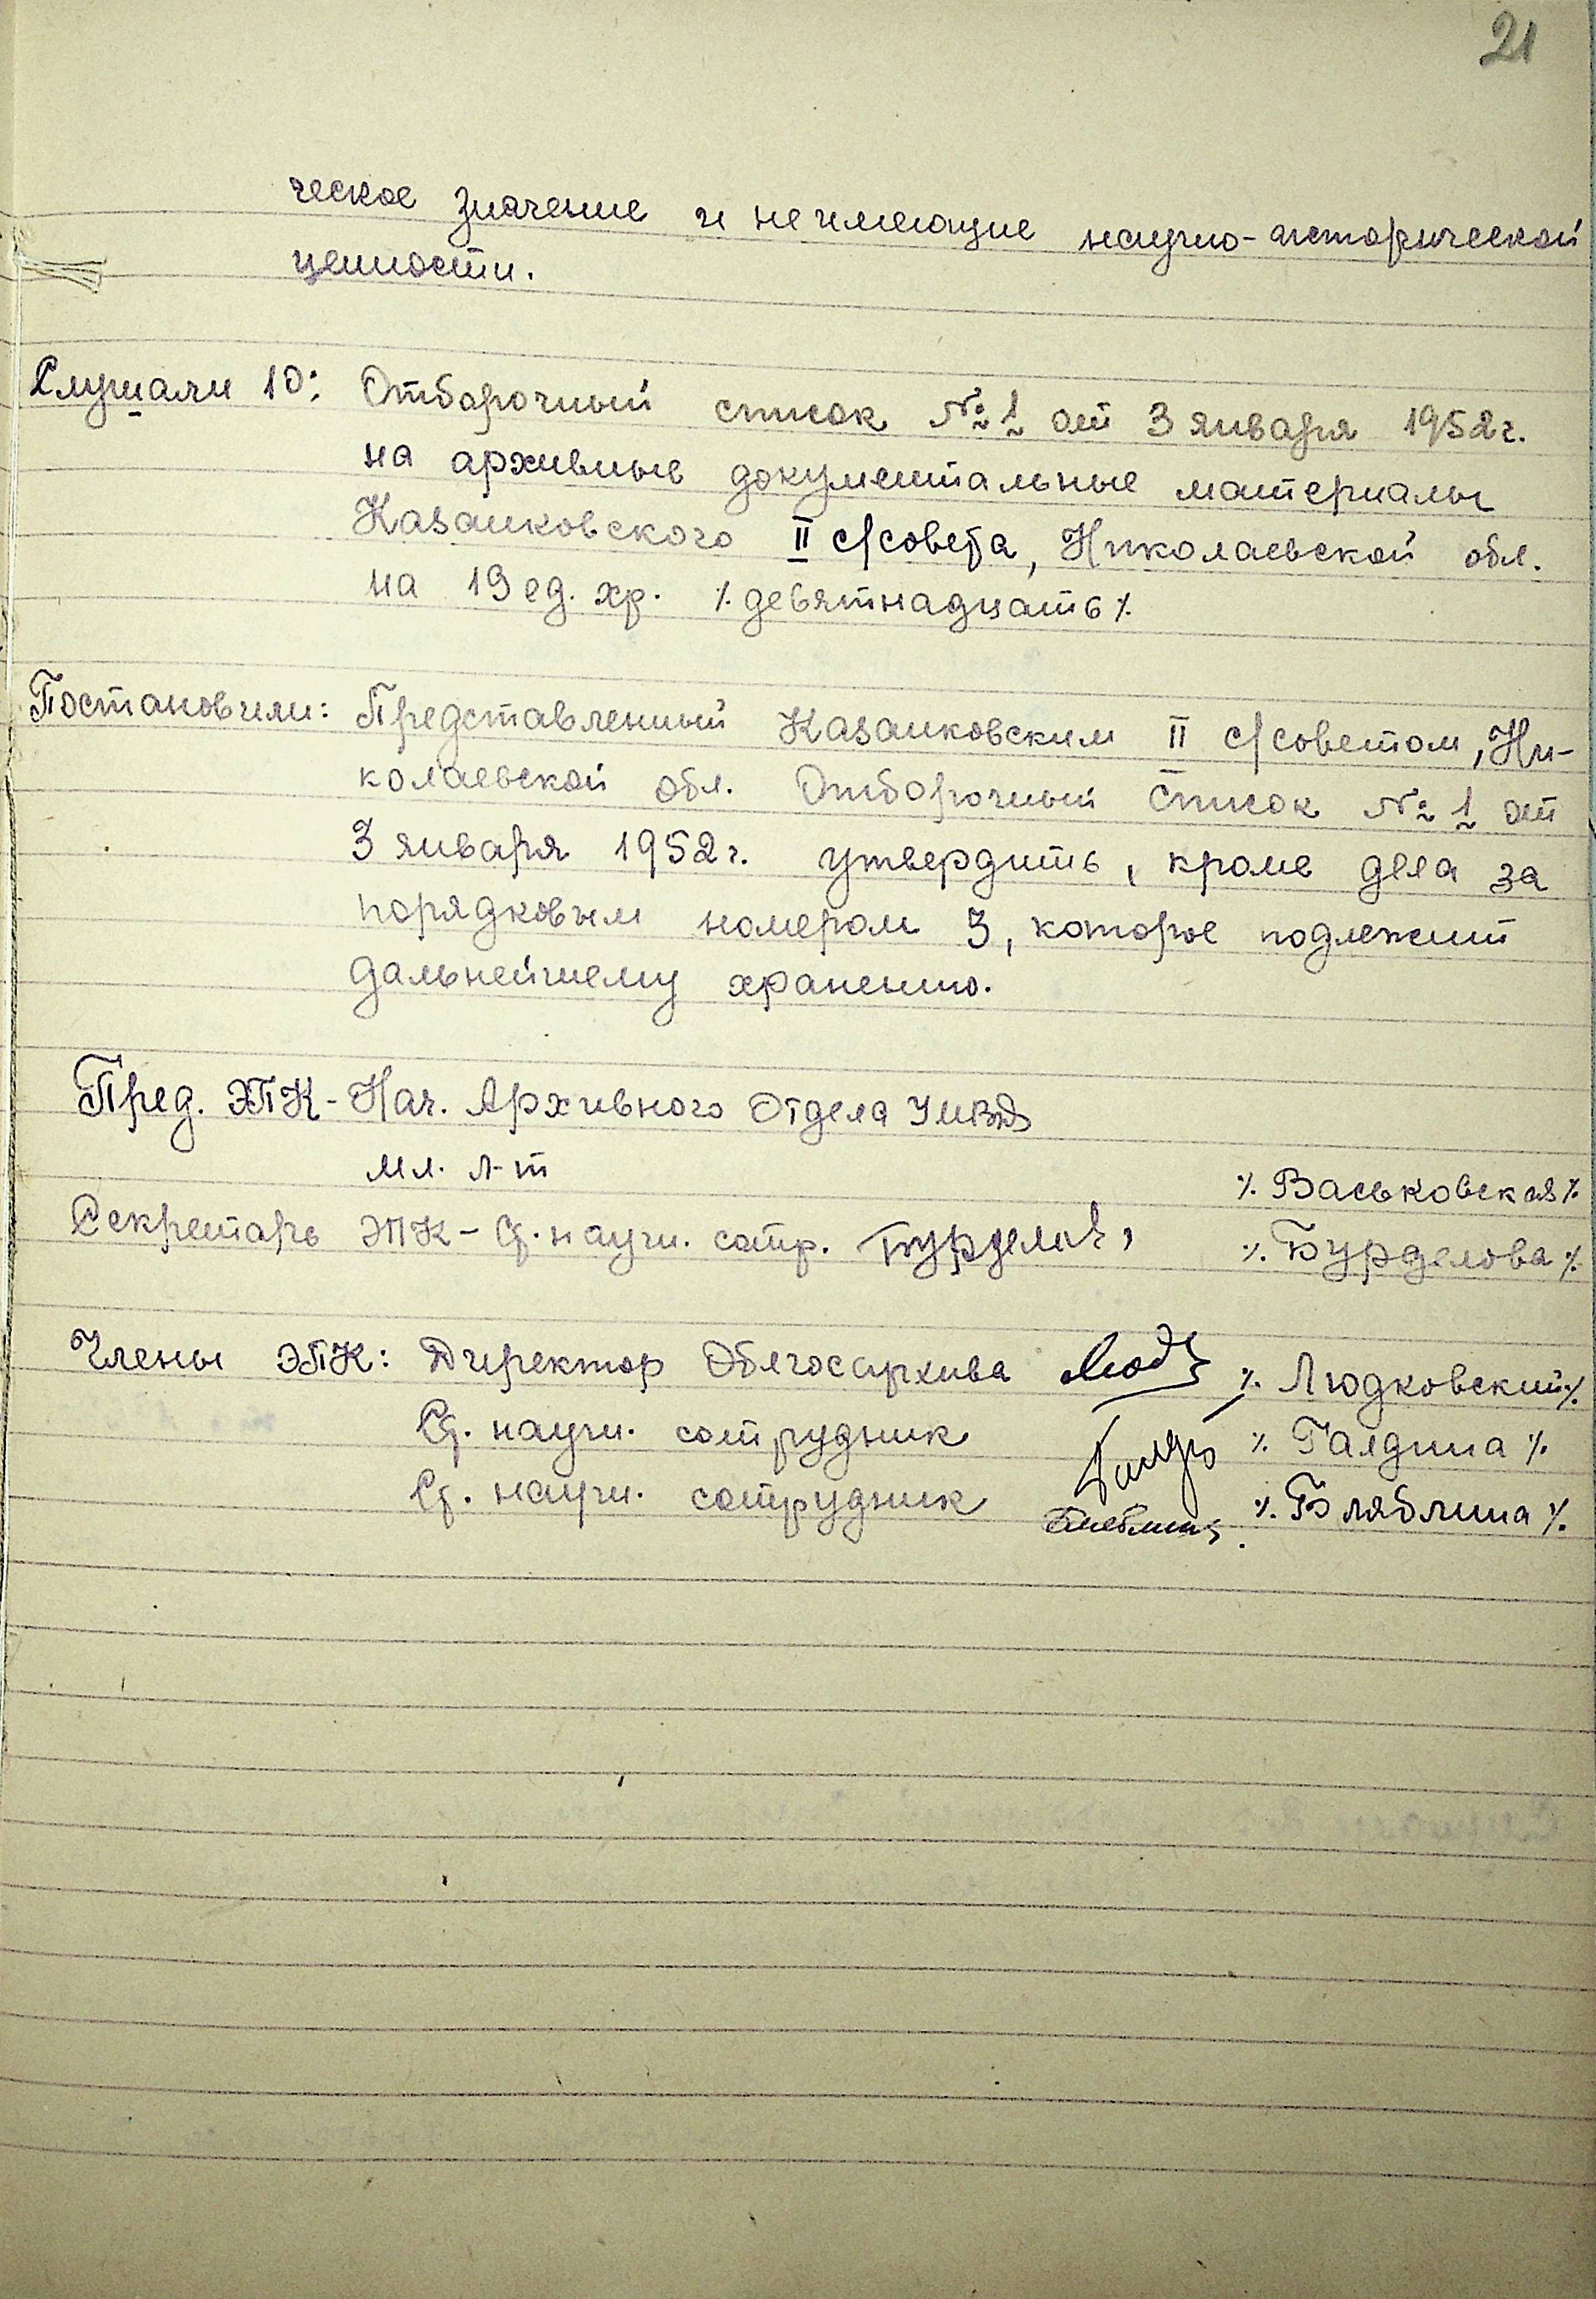 21
ческое значение и не имеющие научно-исторической
ценности.
Слушали 10: Отборочный список № 1 от 3 января 1952 г.
на архивные документальные материалы
Казанковского II с/совета, Николаевской обл.
на 19 ед. хр. ٪ девятнадцать ٪
Постановили: Представленный Казанковским II с/советом, Ни-
колаевской обл. Отборочный список № 1 от
3 января 1952 г. утвердить, кроме дела за
порядковым номером 3, которое подлежит
дальнейшему хранению.
Пред. ЭПК - Нач. Архивного Отдела УМВД
мл. л-т ٪ Васьковская ٪
Секретарь ЭПК - Ср. научн. сотр. Бурделов, ٪ Бурделова ٪
Члены ЭПК: Директор Облгосархива Людк ٪ Людковский ٪
Ср. научн. сотрудник ٪ Галдина ٪
Ср. научн. сотрудник ٪ Бляблина ٪